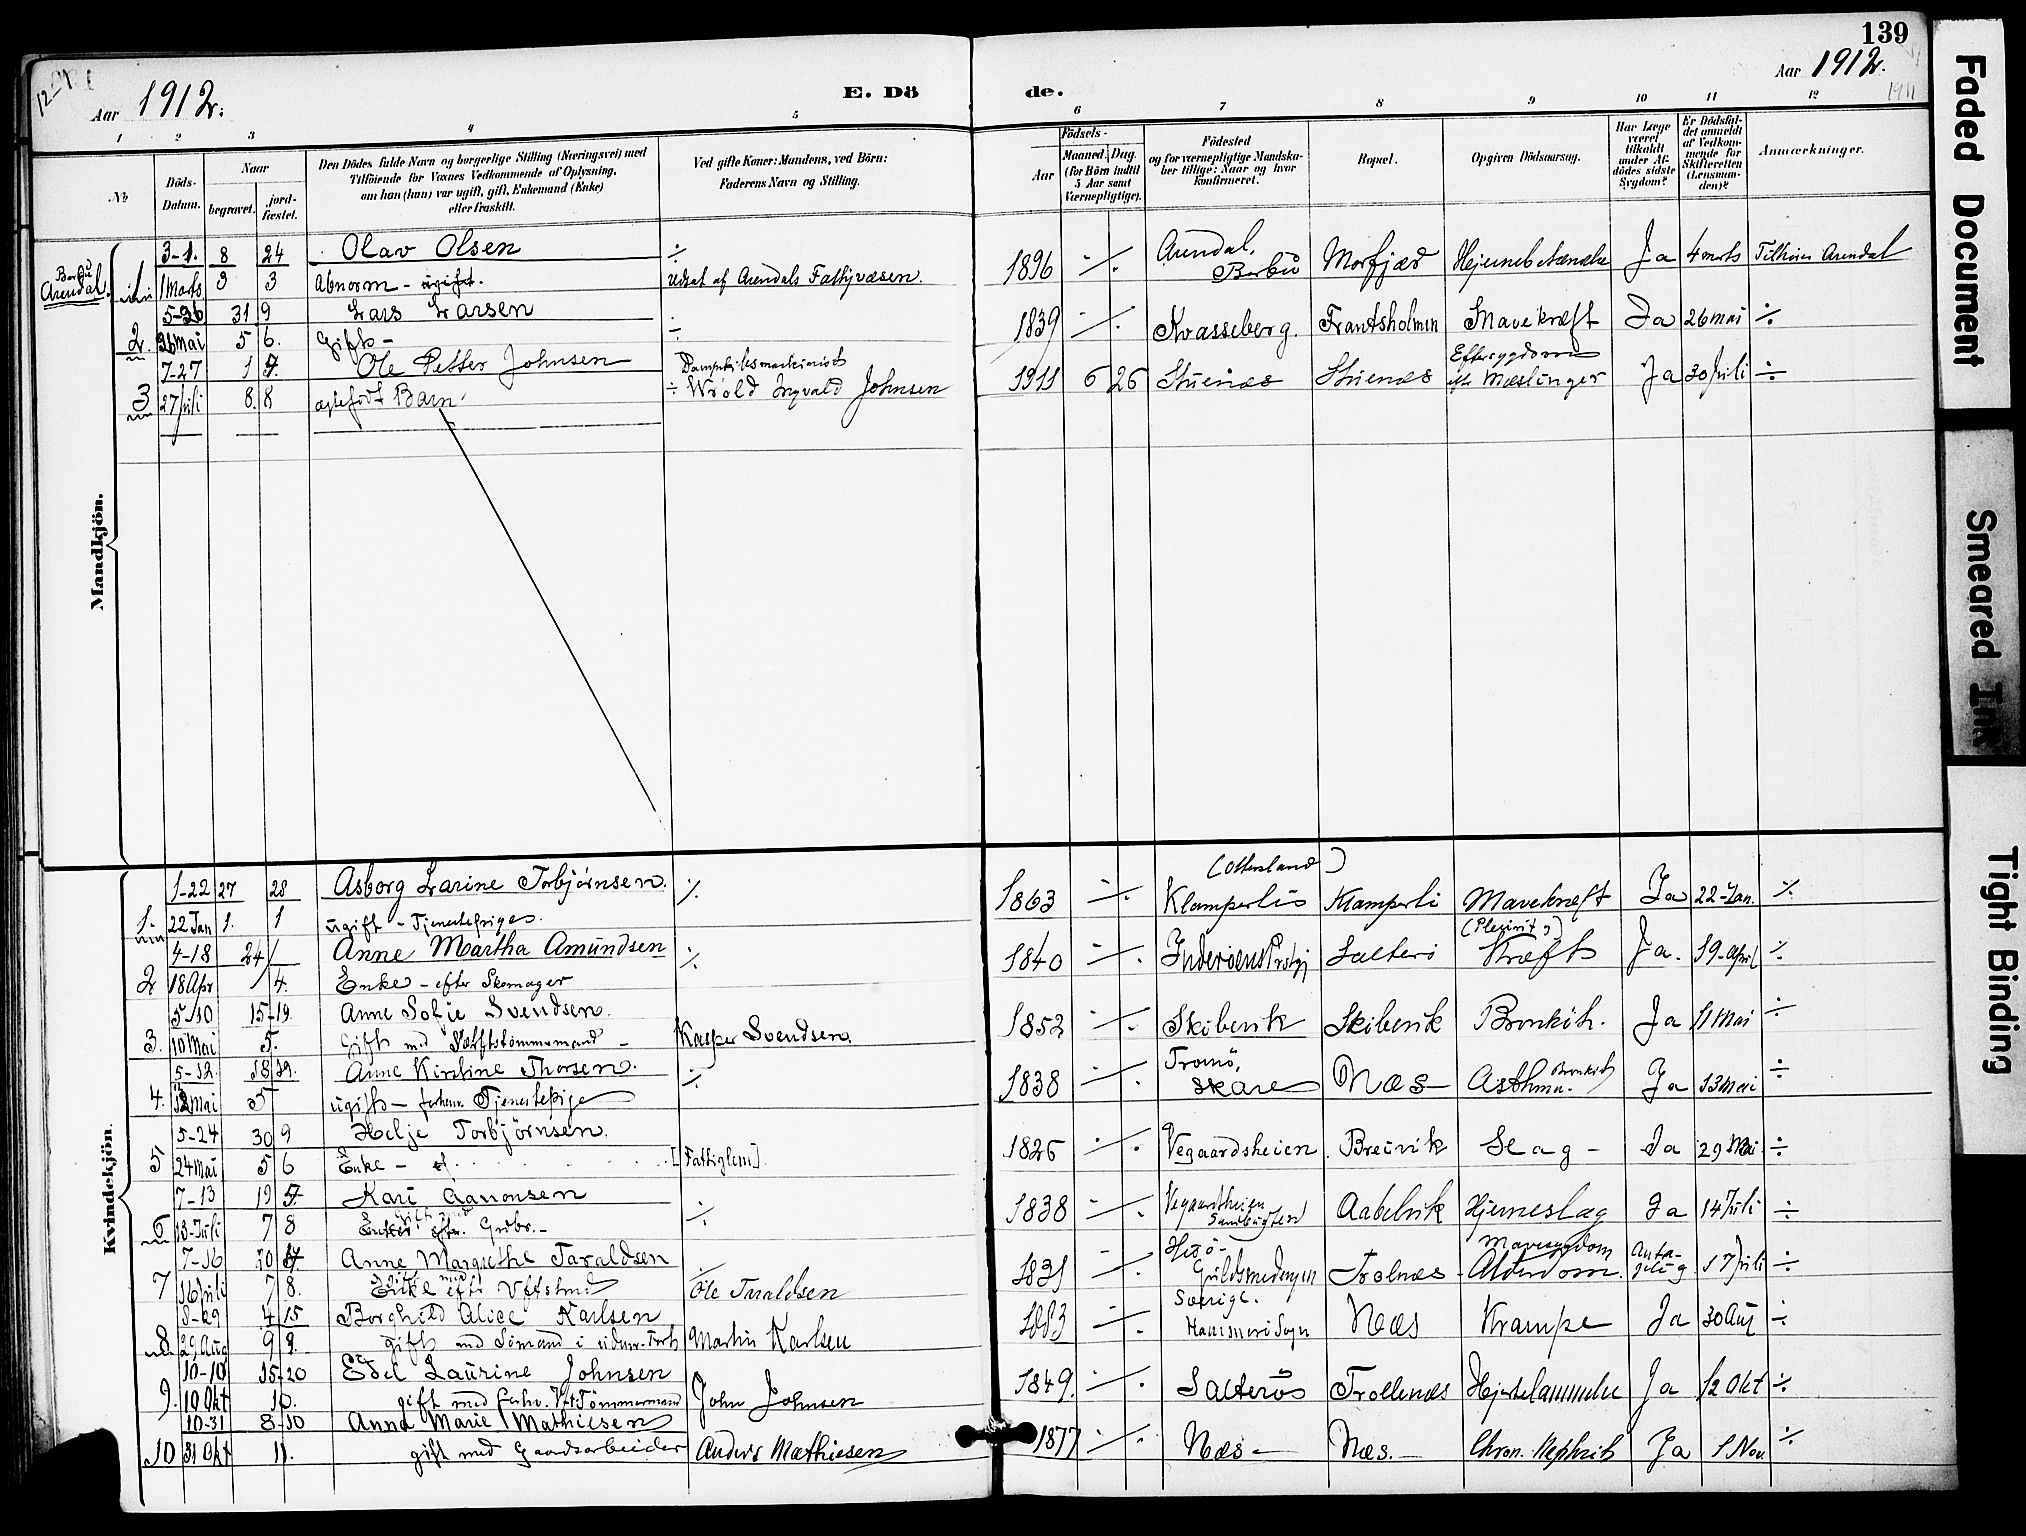 139
Aar 1912.
E. Döde.
Aar 1912.
1 2 3 4 5 6 7 8 9 10 11 12
№
Döds-Datum.
Naar
begravet.
jord-fæstet.
Den Dödes fulde Navn og borgerlige Stilling (Næringsvei) med
Tilföiende for Voxnes Vedkommende af Oplysning,
om han (hun) var ugift, gift, Enkemand (Enke)
eller fraskilt.
Ved gifte Koner: Mandens, ved Börn:
Faderens Navn og Stilling.
Födsels-
Aar
Maaned. Dag.
(for Börn indtil
5 Aar samt
Værnepligtige).
Födested
og for værnepligtige Mandska-
ber tillige: Naar og hvor
konfirmeret.
Bopæl.
Opgiven Dödsaarsag.
Har Læge
været
tilkaldt
under Af-
dödes sidste
Sygdom?
Er Dödsfal-
det anmeldt
af Vedkom-
mende for
Skifteretten
(Lensman-
den)?
Anmærkninger.
Mandkjön.
Barbu
Arendal
3-1. 8 24 Olav Olsen ÷ 1896 ÷ Arendal, Barbu Ja 4 marts
1 1 Marts 3 3 Abnorm - ugift. Udsat af Arendals Fattigvæsen.
5-26 31 9 Lars Larsen ÷ 1839 ÷ Kvasseberg. Frantsholmen Mavekræft Ja 26 mai ÷
2. 26 Mai 5 6. Gift -
7-27 1 Ole Petter Johnsen 1911 6 26 Stuenæs Stuenæs Eftersygdom efter Mæslinger Ja 30 Juli ÷
3 27 juli 8. 8 ægtefödt Barn. ÷ Ingvald Johnsen
Kvindekjön.
1-22 27 28 Asborg Larine Torbjörnsen. ÷ 1863 ÷ Klamperli Mavekræft Ja 22-Jan. ÷
1. 22 Jan 1. 1 ugift - Tjenestepige
4-18 24 Anne Martha Amundsen ÷ 1840 ÷ Salterö Kræft Ja. 19-April ÷
2 18 Apr 4. Enke - efter Skomager
5-10 15-19. Anne Sofie Svendsen. 1852 ÷ Skibevik Skibevik Bronkit. Ja 11 Mai ÷
3. 10 Mai 5. Gift med Kasper Svendsen.
5-12. 18 19. Anne Kirstine Thorsen. ÷ 1838 ÷ Tromö, Skare Næs - Asthma. Bronkit Ja 13 mai ÷
4. 12 Mai 5 ugift - forhenv. Tjenestepige
5-24 30 9 Helje Torbjörnsen. 1825 ÷ Vegaardsheien Breivik Slag - Ja 29 Mai ÷
5 24 Mai 5 6 Enke - [Fattiglem].
7-13 19 Kari Aanonsen ÷ 1838 ÷ Vegaardsheien Hjerneslag Ja 14 Juli ÷
6 13-Juli 7 8 Gift med
7-16 20 Anne Margrethe Taraldsen 1831 ÷ Hisö- Alderdom. 17 juli ÷
7 16 juli 7 8. gift med Ole Taraldsen
8-29 4 15 Borghild Alice Karlsen 1883 ÷ Sverige. Næs Krampe Ja 30 Aug ÷
8 29 Aug 9 9. gift med Sömand i udenr. Fart Martin Karlsen
10-10 15-20 Edel Laurine Johnsen 1849. ÷ Salterös Trollenæs Hjertelammelse Ja 12 Okt ÷
9. 10 Okt 10. gift med forhv. Tömmermand John Johnsen
10-31 8-10 Anna Marie Mathiesen 1877 ÷ Næs - Næs. - Chron. Nephrit Ja 1 Nov. ÷
10 31 Okt 11. gift med Gaardsarbeider Anders Mathiesen
Faded Document
Smeared Ink
Tight Binding